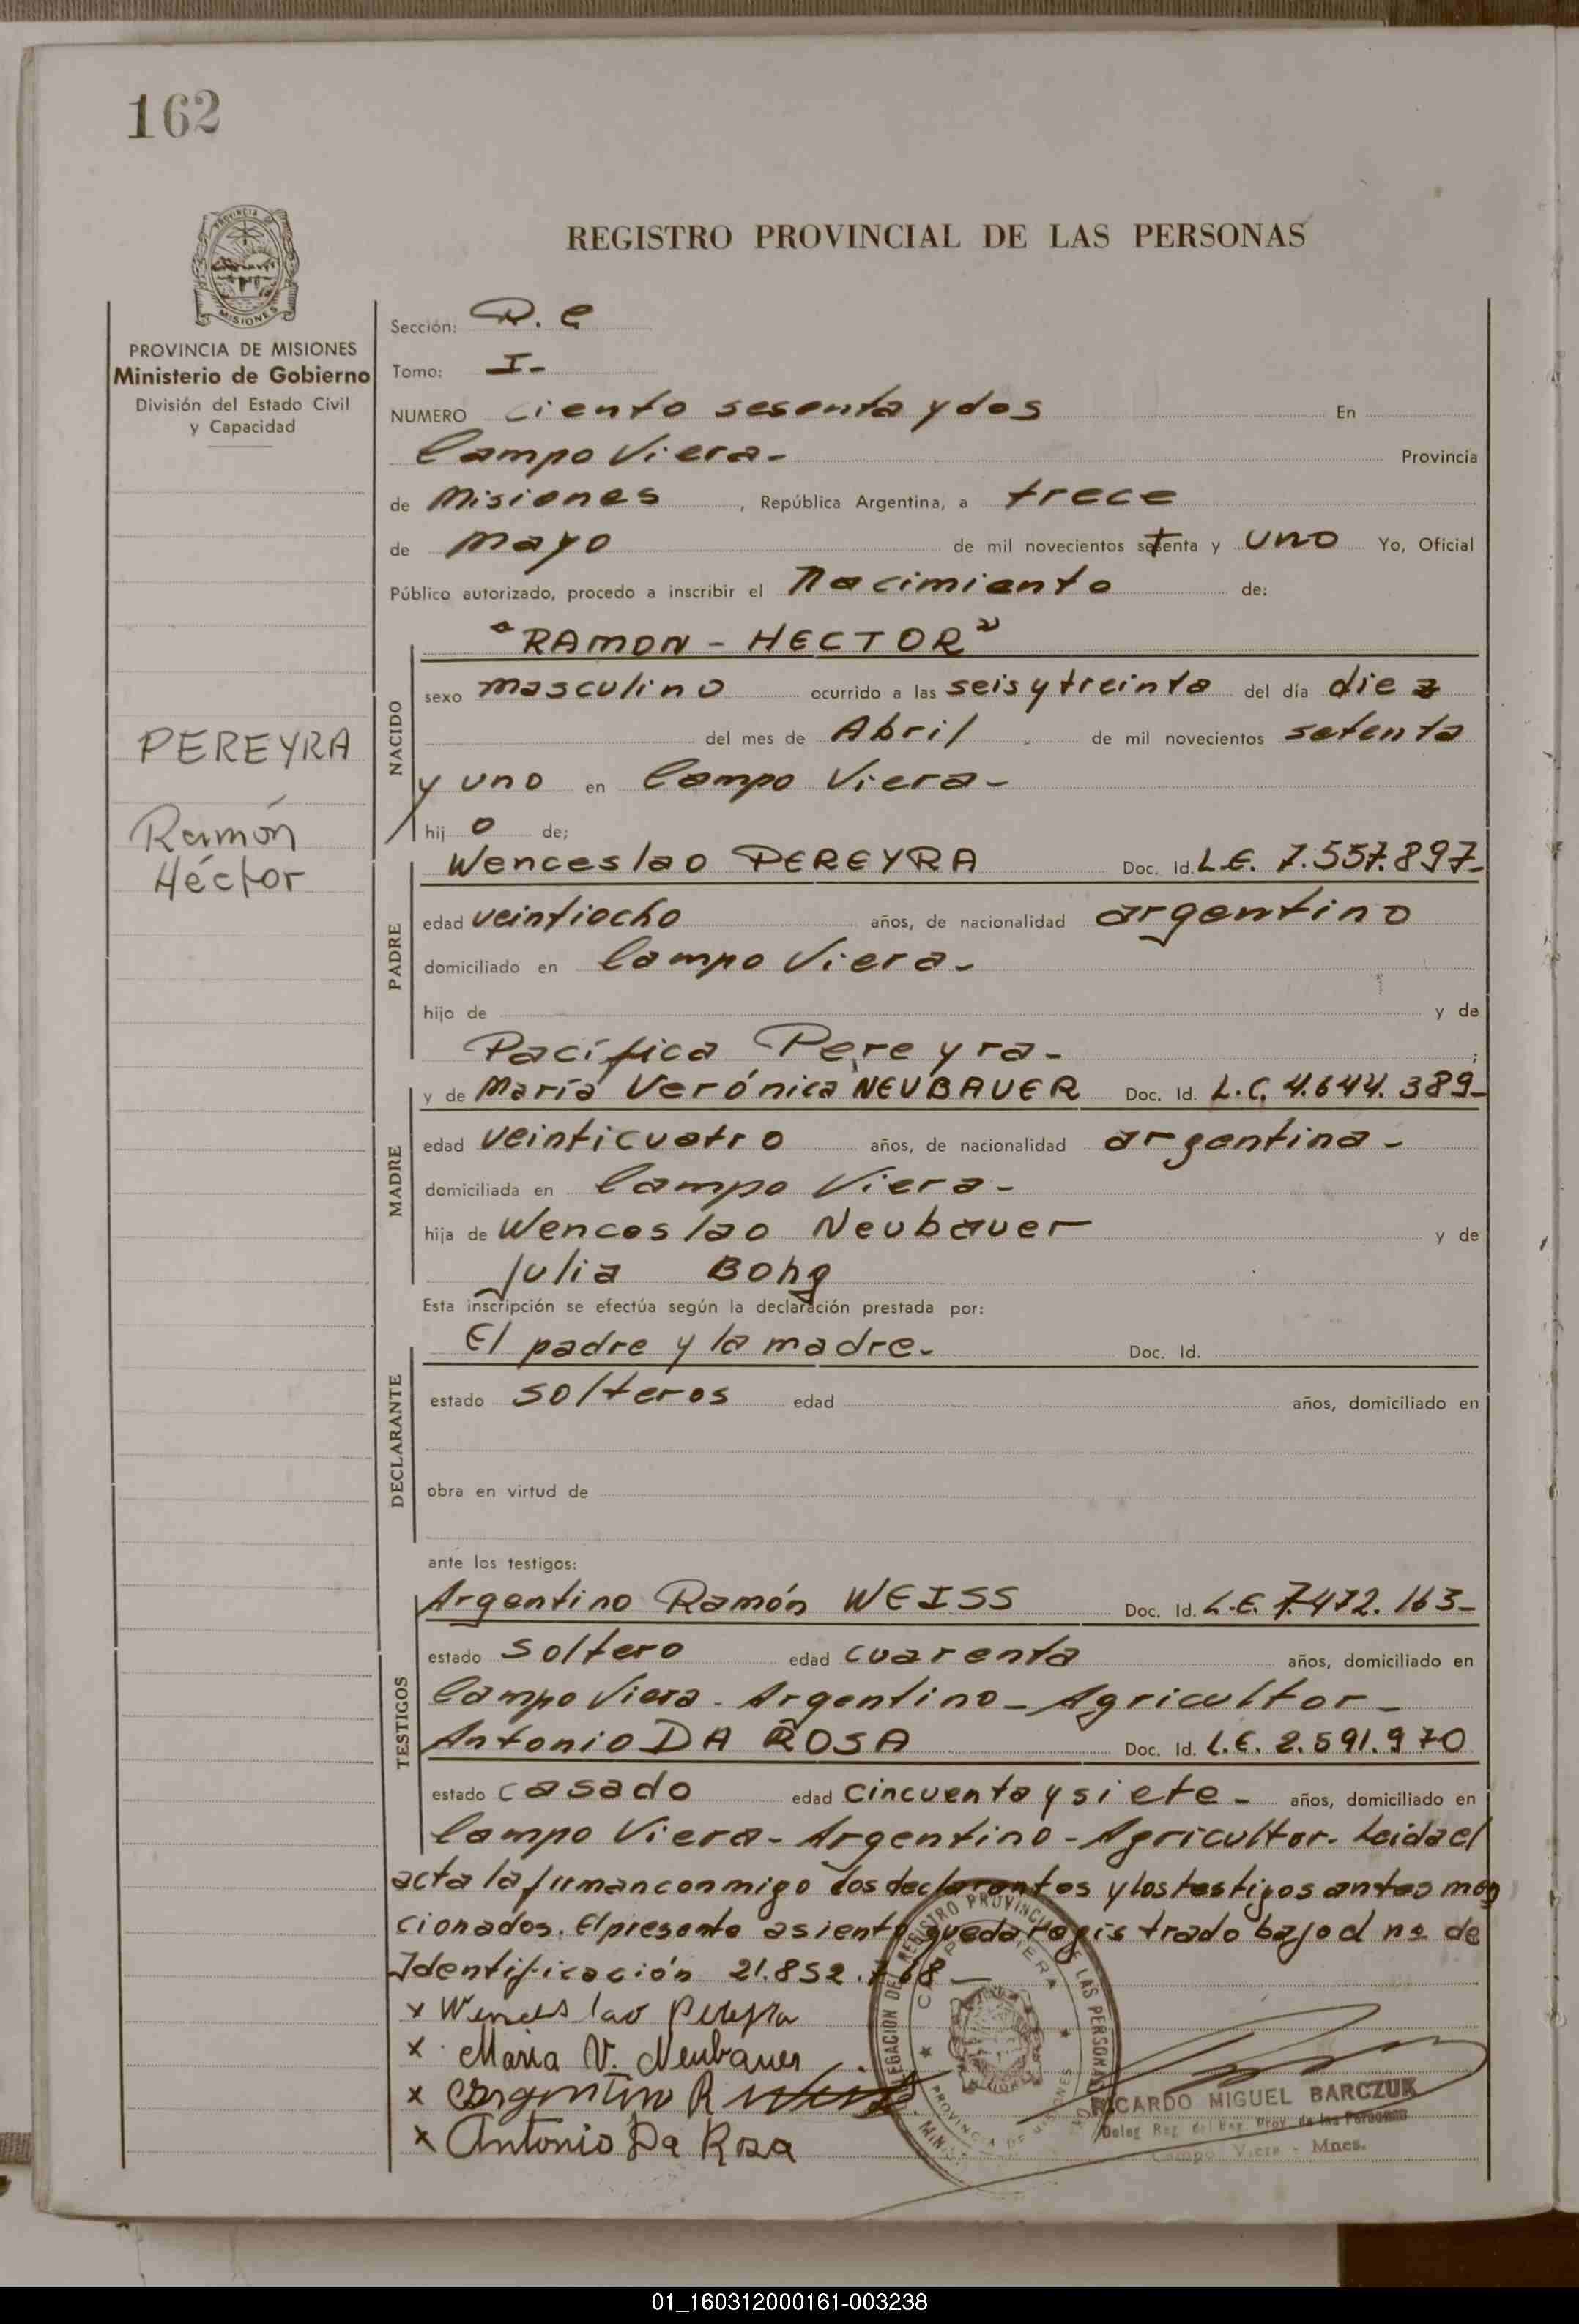 162
REGISTRO PROVINCIAL DE LAS PERSONAS
PROVINCIA DE MISIONES
Ministerio de Gobierno
División del Estado Civil
y Capacidad
PEREYRA
Ramón
Héctor
Sección: R. C
Tomo: I-
NUMERO ciento sesenta y dos En
Campo Viera- Provincia
de Misiones, República Argentina, a trece
de mayo de mil novecientos setenta y uno Yo, Oficial
Público autorizado, procedo a inscribir el Nacimiento de:
NACIDO
"RAMON - HECTOR"
sexo masculino ocurrido a las seis y treinta del día diez
del mes de Abril de mil novecientos setenta
y uno en Campo Viera-
hijo de;
PADRE
Wenceslao PEREYRA Doc. Id. L.E. 7.557.897-
edad veintiocho años, de nacionalidad argentino
domiciliado en Campo Viera-
hijo de y de
Pacífica Pereyra- ;
MADRE
y de María Verónica NEUBAUER Doc. Id. L.C. 4.644.389-
edad veinticuatro años, de nacionalidad argentina-
domiciliada en Campo Viera-
hija de Wenceslao Neubauer y de
Julia Bohg
Esta inscripción se efectúa según la declaración prestada por:
DECLARANTE
El padre y la madre- Doc. Id.
estado solteros edad años, domiciliado en
obra en virtud de
ante los testigos:
TESTIGOS
Argentino Ramón WEISS Doc. Id. L.E. 7.472.163-
estado soltero edad cuarenta años, domiciliado en
Campo Viera - Argentino - Agricultor -
Antonio DA ROSA Doc. Id. L.E. 2.591.970
estado casado edad cincuenta y siete - años, domiciliado en
Campo Viera- Argentino - Agricultor- Leida el
acta la firman conmigo los declarantes y los testigos antes men
cionados. El presente asiento queda registrado bajo el nº de
Identificación 21.852.768-
x Wenceslao Pereyra
x Maria V. Neubauer
x Argentino R Weiss
x Antonio Da Rosa
DELEGACION DEL REGISTRO PROVINCIAL DE LAS PERSONAS
CAMPO VIERA
PROVINCIA DE MISIONES
RICARDO MIGUEL BARCZUK
Deleg Reg. del Reg. Prov. de las Personas
Campo Viera - Mnes.
01_160312000161-003238